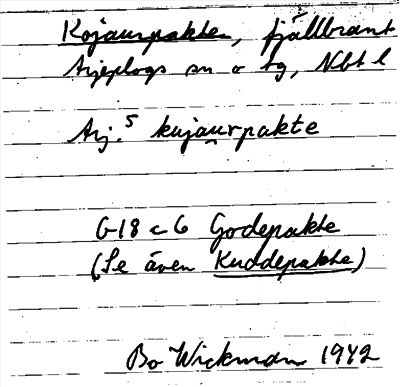 Kojaurpakte, fjällbrant
Arjeplogs sn o tg, Nbt l
Arj.5 kujau̯rpakte
G18 c 6 Godepakte
(Se även Kuddepakte)
Bo Wickman 1942